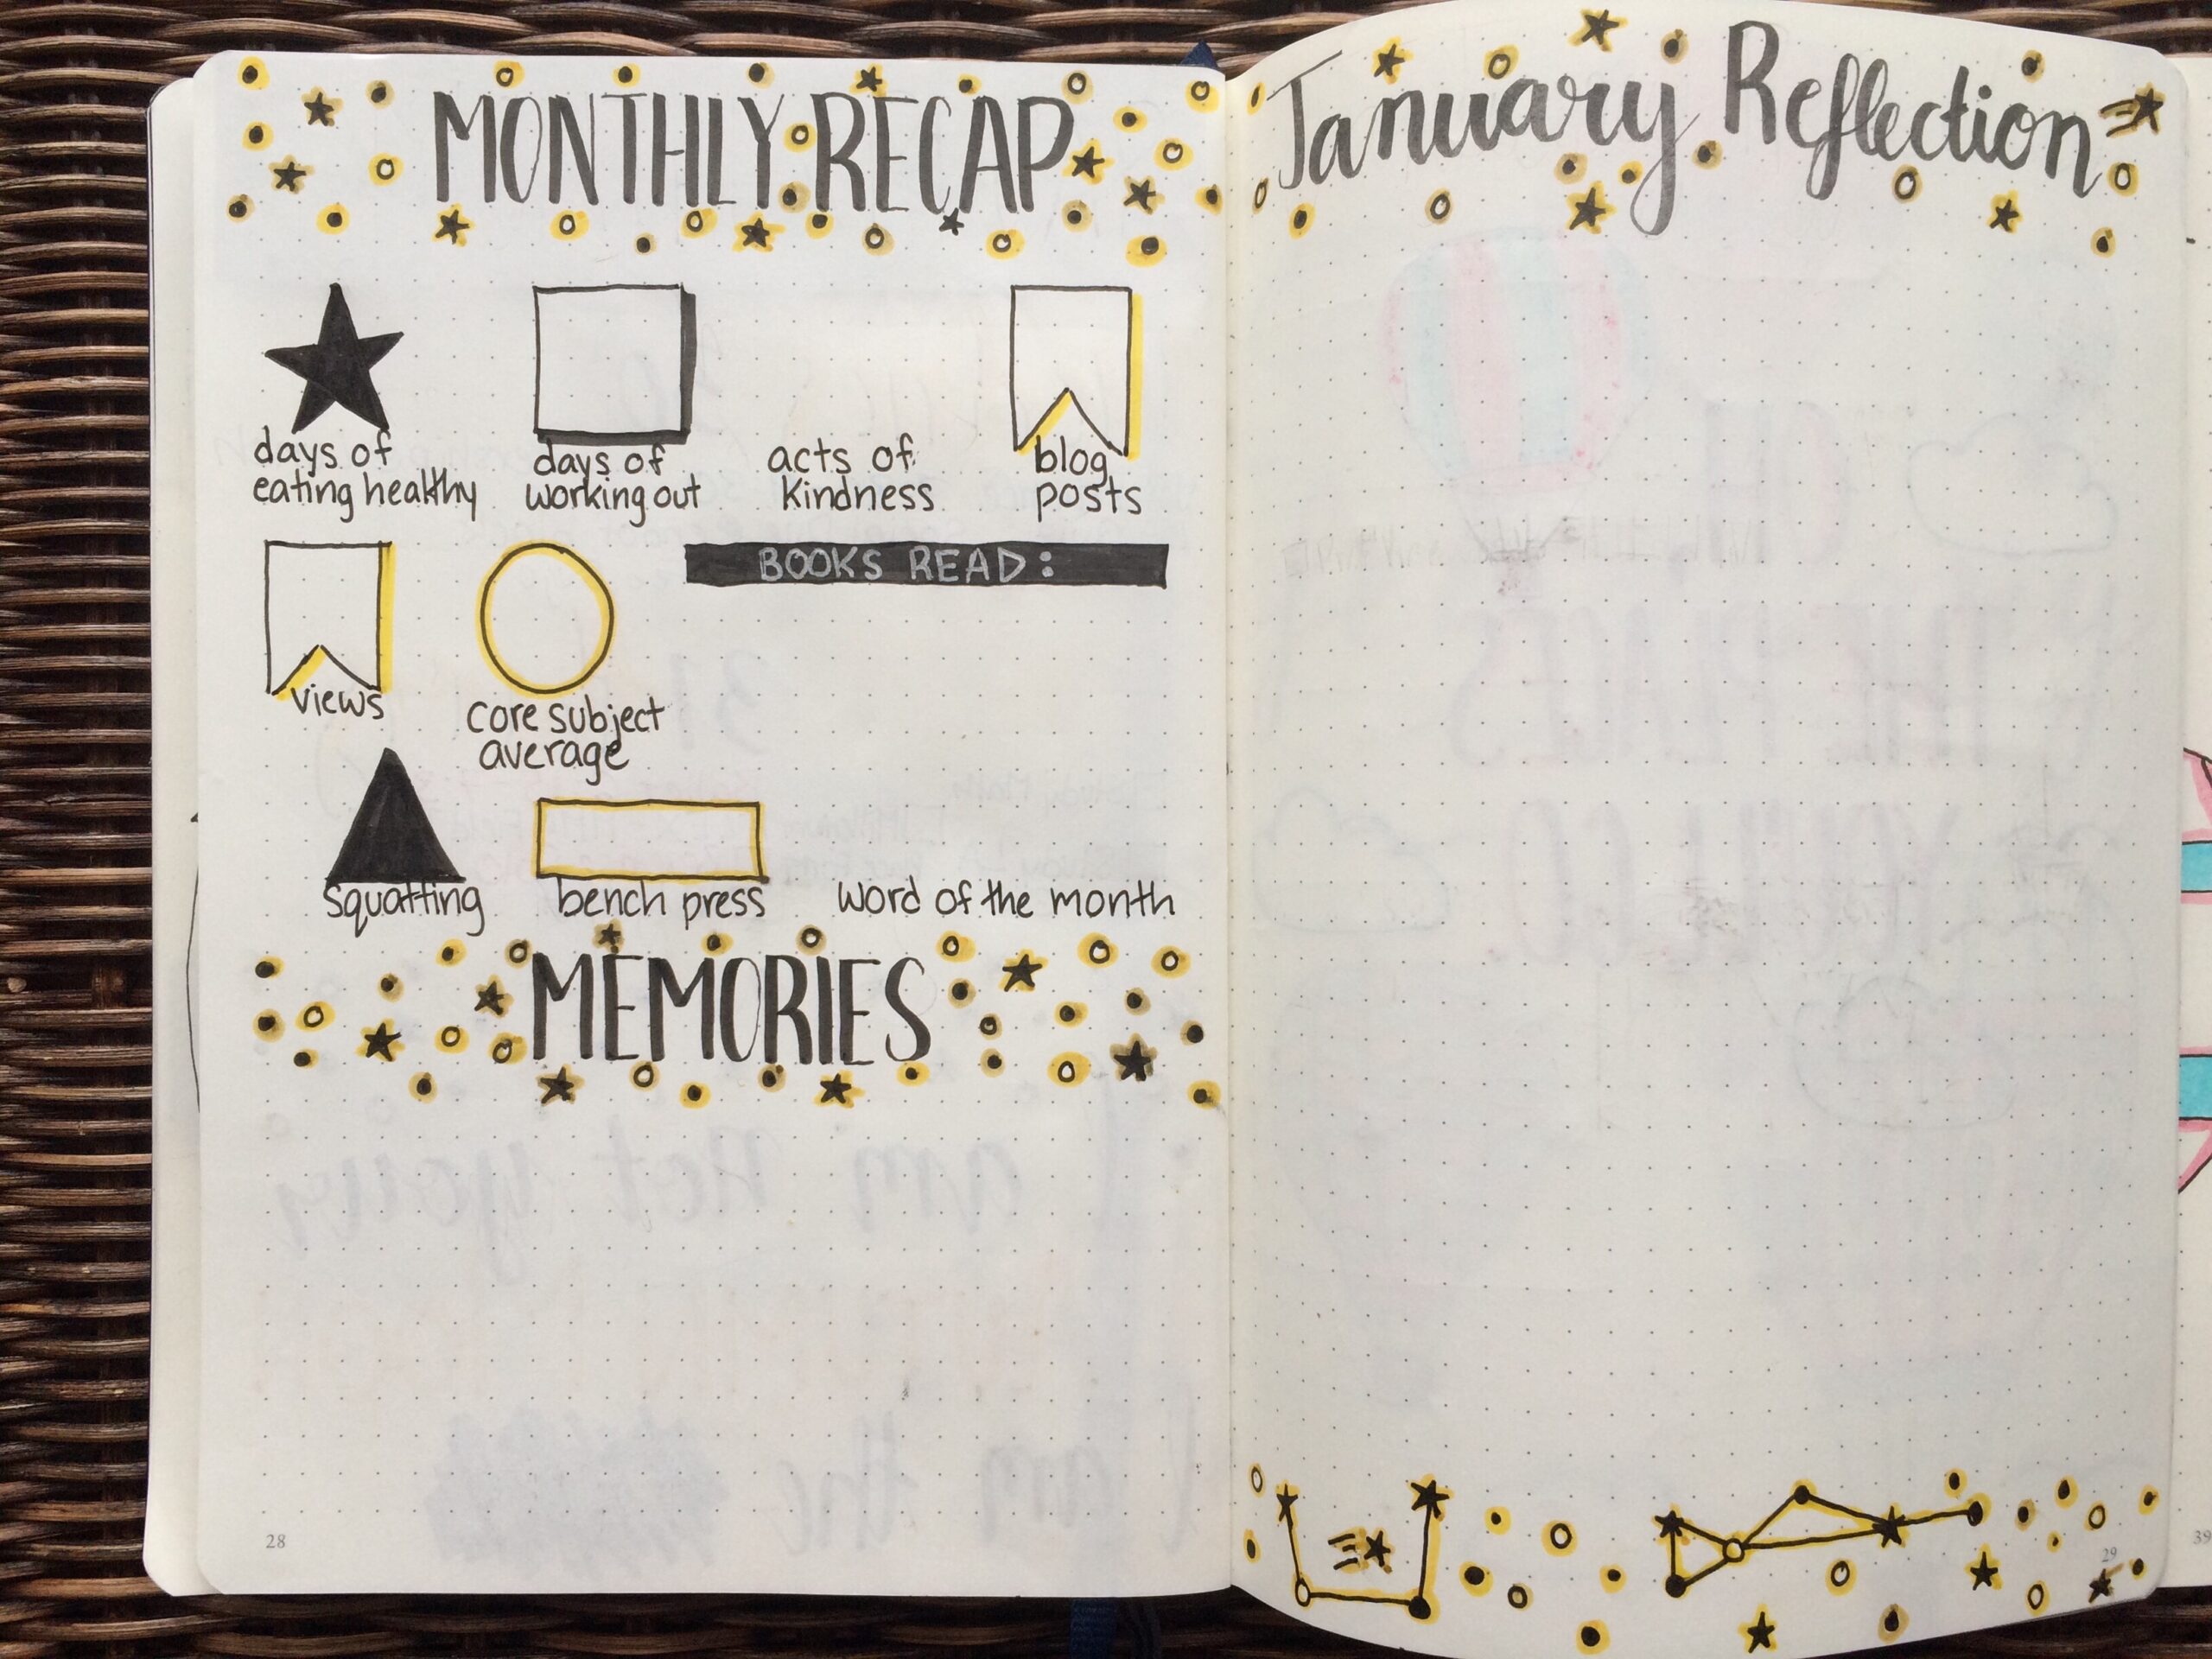 MONTHLY RECAP
days of
eating healthy
days of
working out
acts of
kindness
blog
posts
views
core subject
average
BOOKS READ:
squatting
bench press
word of the month
MEMORIES
28
January Reflection
29
39